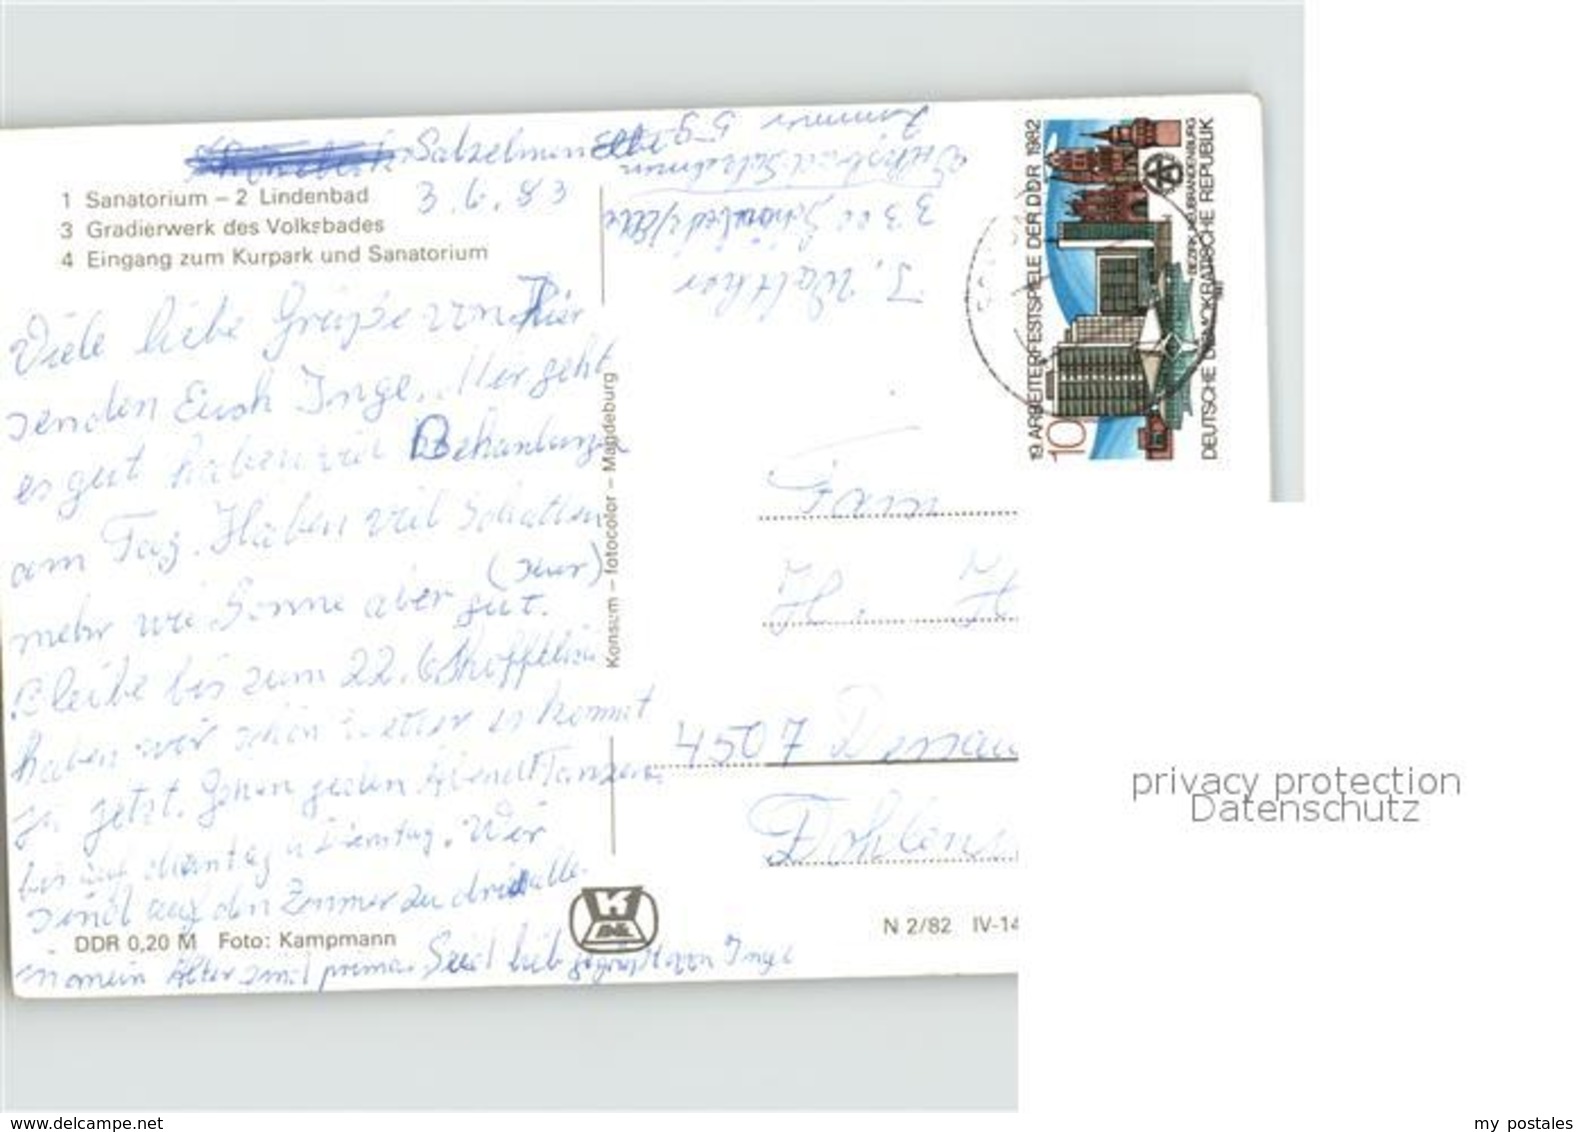 Salzelmen
3.6.83
1 Sanatorium – 2 Lindenbad
3 Gradierwerk des Volksbades
4 Eingang zum Kurpark und Sanatorium
Viele liebe Grüße von hier
senden Euch Inge. Hier geht
es gut haben viel Behandlung
am Tag. Haben viel Schatten
(nur)
mehr wie Sonne aber gut.
Bleibe bis zum 22.6.
haben wir schön Wetter es kommt
ja jetzt. Gehen jeden Abend Tanzen
bis auf Montag u Dienstag. Wir
sind auf den Zimmer zu drid alle
in mein Alter sind prima. Seid lieb gegrüßt von Inge
DDR 0,20 M Foto: Kampmann
Konsum – fotocolor – Magdeburg
Zimmer 59
Volksbad Salzelmen
33 Schönebeck/Elbe
I. Walther
19. ARBEITERFESTSPIELE DER DDR 1982
10
BEZIRK NEUBRANDENBURG
DEUTSCHE DEMOKRATISCHE REPUBLIK
Fam
H. H
4507 Dessau
Dohlen
K
N 2/82 IV-14
privacy protection
Datenschutz
www.delcampe.net
my postales